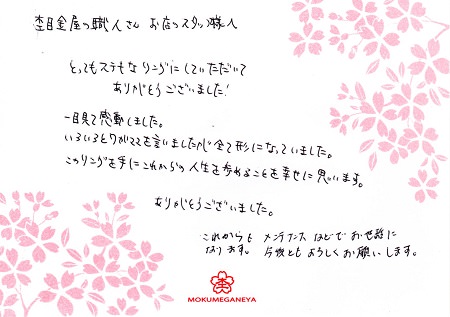 杢目金屋の職人さん お店のスタッフ様へ
とってもステキなリングにしていただいて
ありがとうございました!
一目見て感動しました。
いろいろとワガママを言いましたが全て形になっていました。
このリングを手にこれからの人生を歩めることを幸せに思います。
ありがとうございました。
これからも メンテナンスなどでお世話に
なります。 今後ともよろしくお願いします。
MOKUMEGANEYA